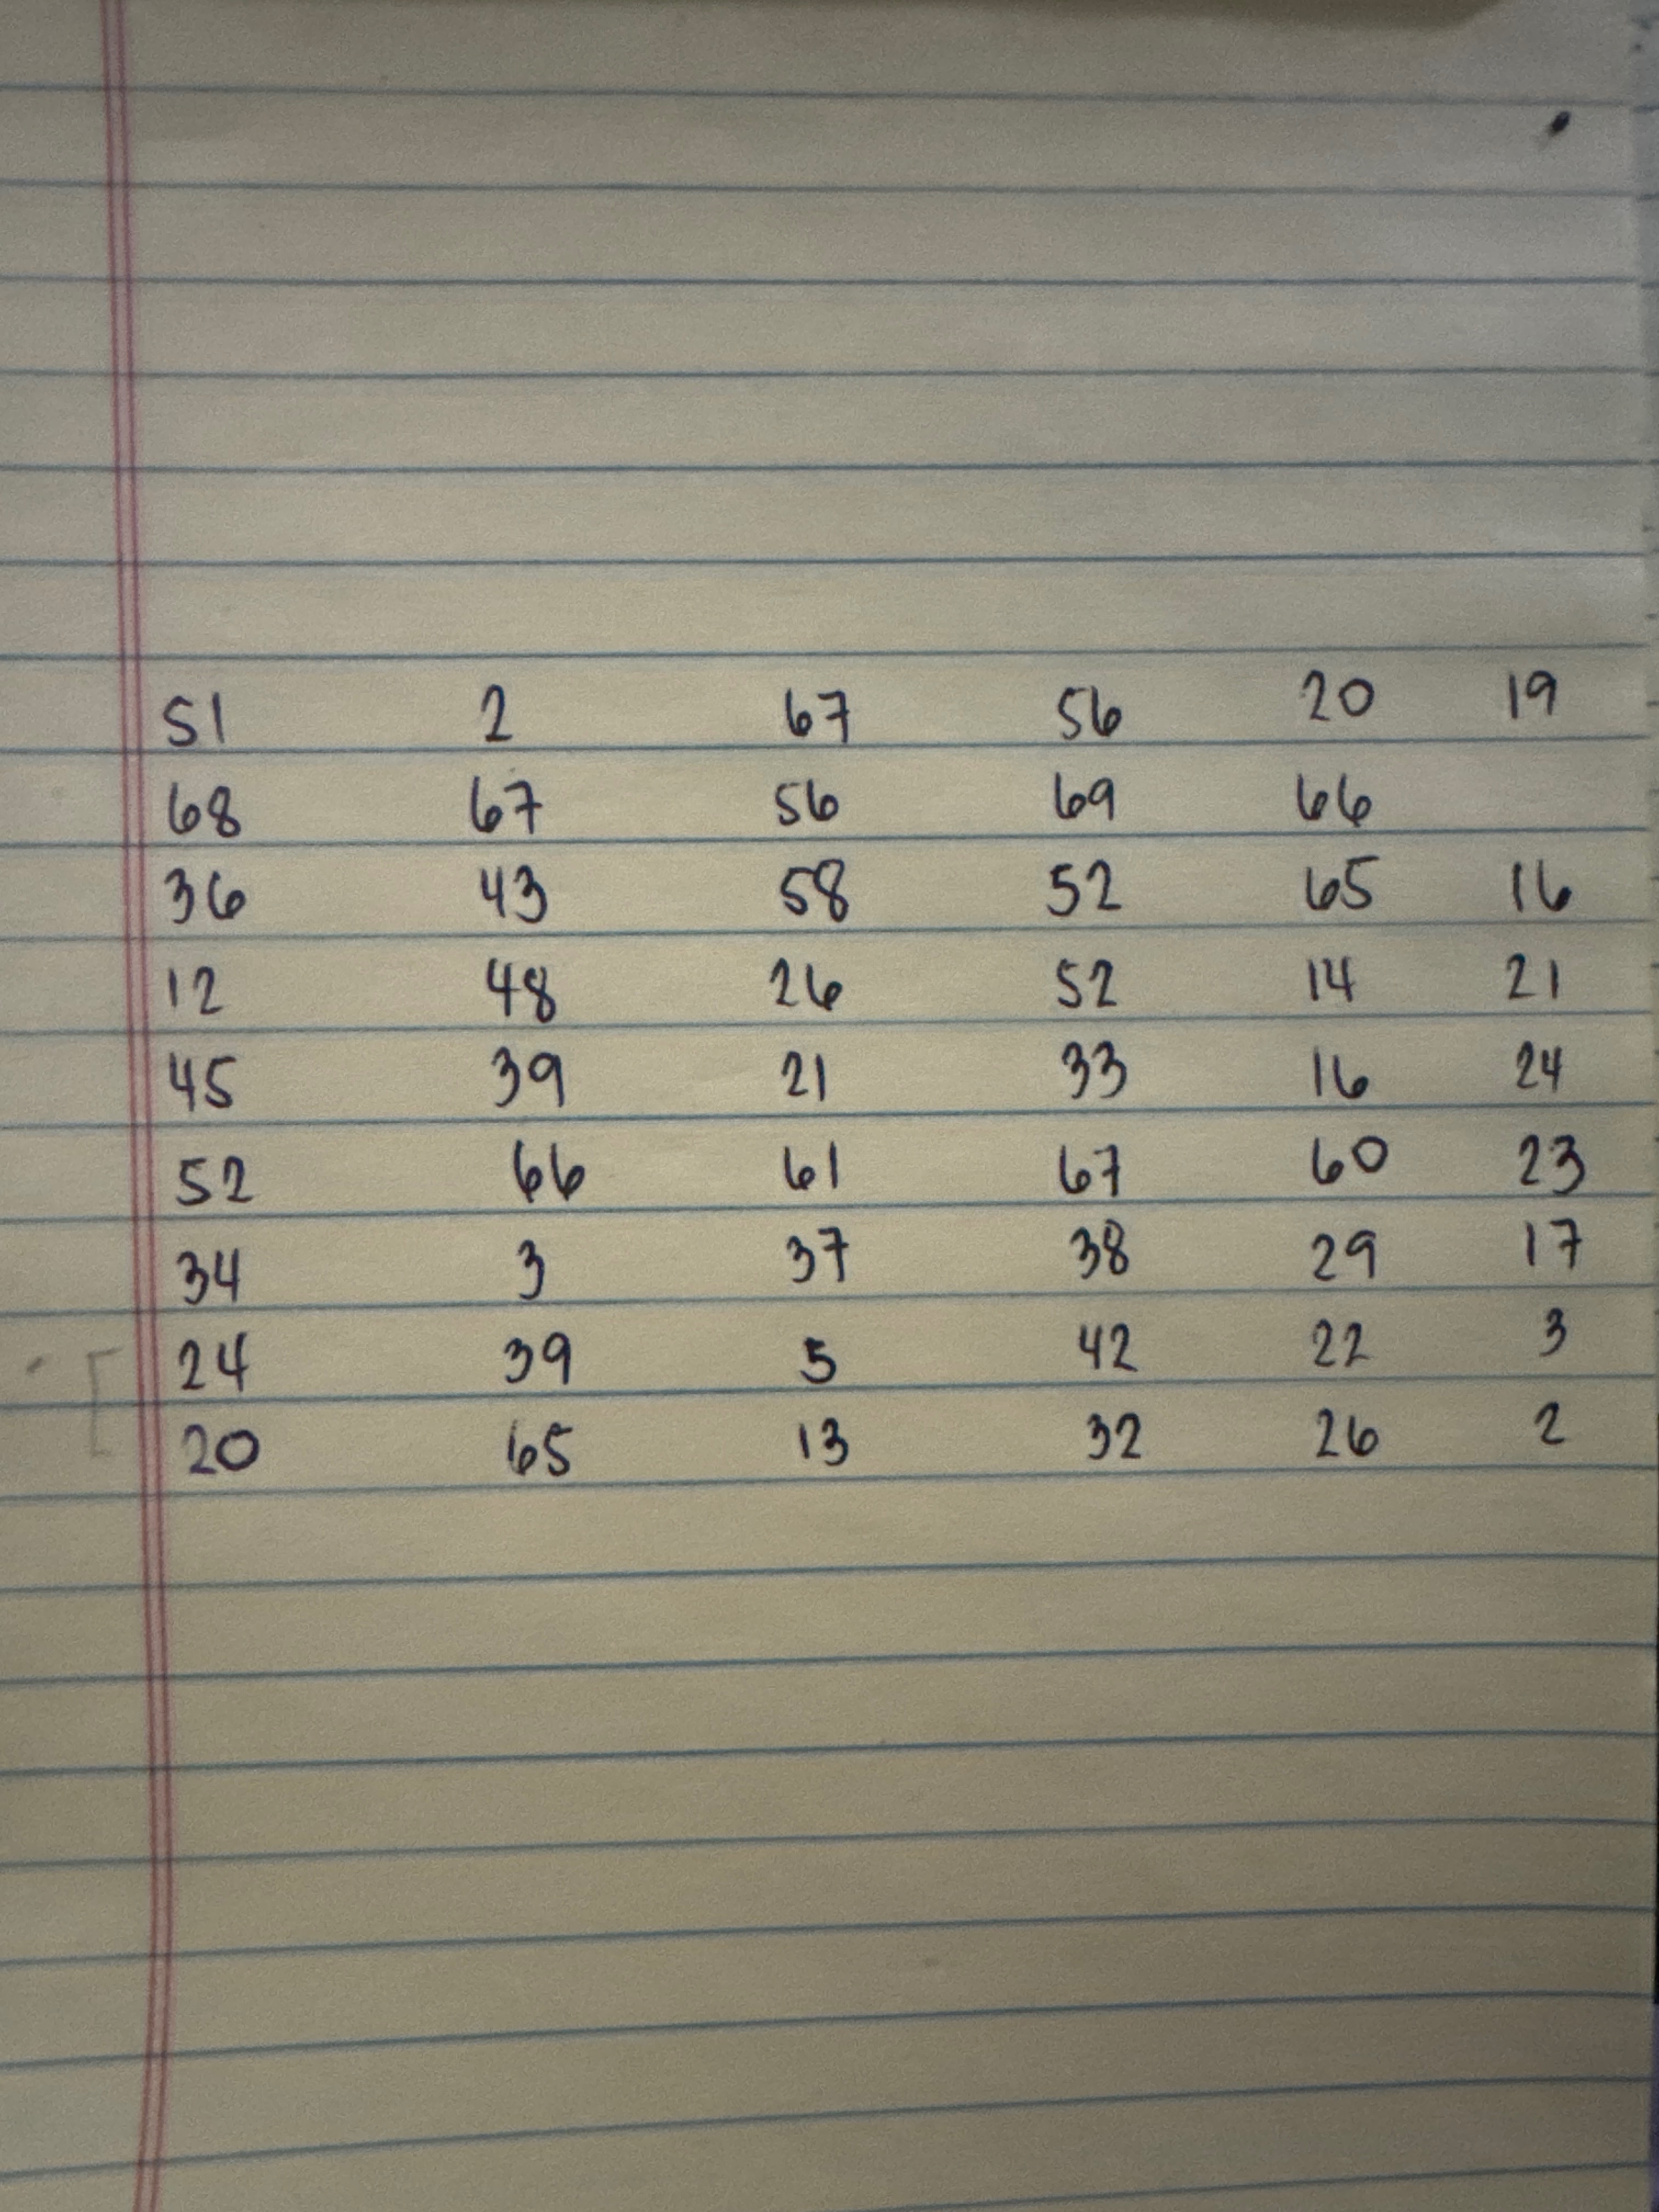 51 2 67 56 20 19
68 67 56 69 66
36 43 58 52 65 16
12 48 26 52 14 21
45 39 21 33 16 24
52 66 61 67 60 23
34 3 37 38 29 17
24 39 5 42 22 3
20 65 13 32 26 2